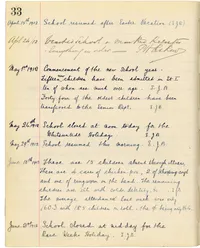 33
April 15th 1912 School resumed after Easter Vacation (I.J.R.)
April 24/12 Visited school &
May 1st 1912 Commencement of the new School year.
Fifteen children have been admitted to St I
six of whom are much over age. I.J.R
Forty four of the oldest children have been
transferred to the Senior Dept. I.J.R
May 24th 1912 School closed at noon today for the
Whitsuntide Holiday. I.J.R
May 29th 1912 School resumed this morning. I.J.R
June 14th 1912 There are 18 children absent through illness.
There are cases of chicken pox, 2 of whooping cough
and one of ringworm in the head. The remaining
children are ill with colds
The average attendance last week was only
160.3 with 183 children in
June 21st 1912 School closed at mid day for the
Race Week Holiday. I.J.R